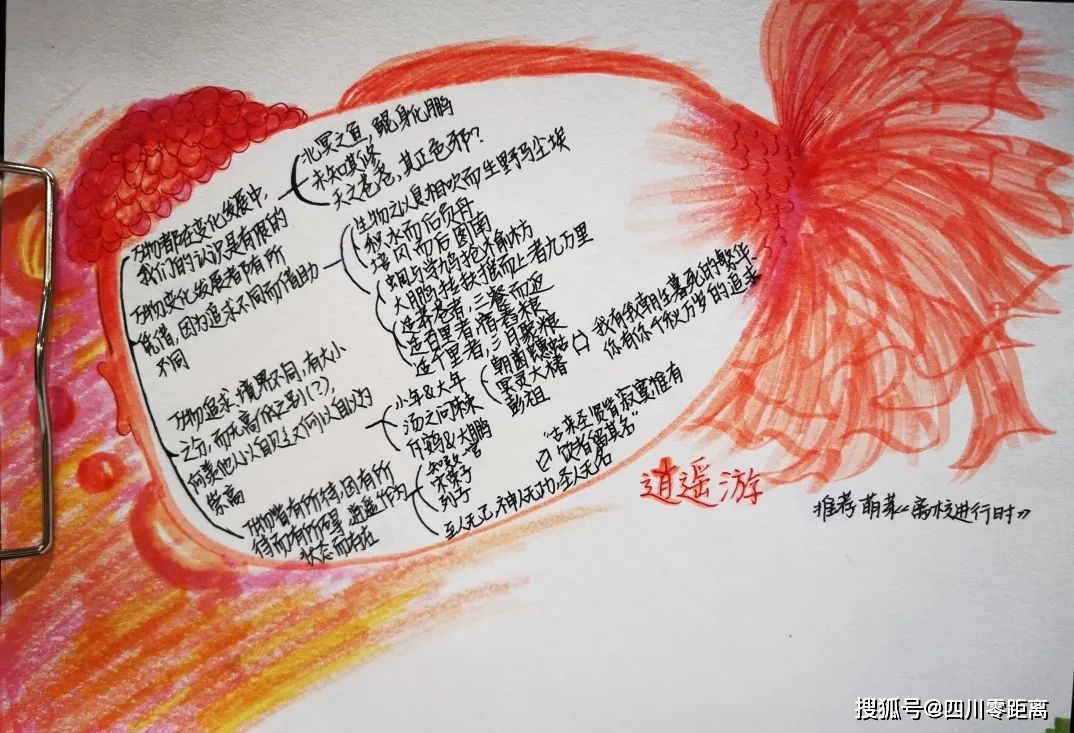 北冥之鱼，鲲身化鹏
未知其修
天之苍苍，其正色邪？
万物都在变化发展中，
我们的认识是有限的
生物之以息相吹而生野马尘埃
积水而后负舟
培风而后图南
蜩与学鸠抢榆枋
大鹏抟扶摇而上者九万里
适莽苍者，三餐而返
适百里者，宿舂粮
适千里者，三月聚粮
万物变化发展都有所
凭借，因为追求不同而凭借助
不同
小年&大年
朝菌蟪蛄
冥灵大椿
彭祖
我有我朝生暮死的繁华
你有你千秋万岁的追求
汤之问棘
斥鴳&大鹏
万物追求境界不同，有大小
之分，而无高低之别(?)，
何羡他人以自见
崇高
知效一官
宋荣子
列子
至人无己，神人无功，圣人无名
"古来圣贤皆寂寞惟有
饮者留其名"
万物皆有所待，因有所
待而有所碍，逍遥作为
状态而存在
逍遥游
推考 萌芽《离校进行时》
搜狐号@四川零距离